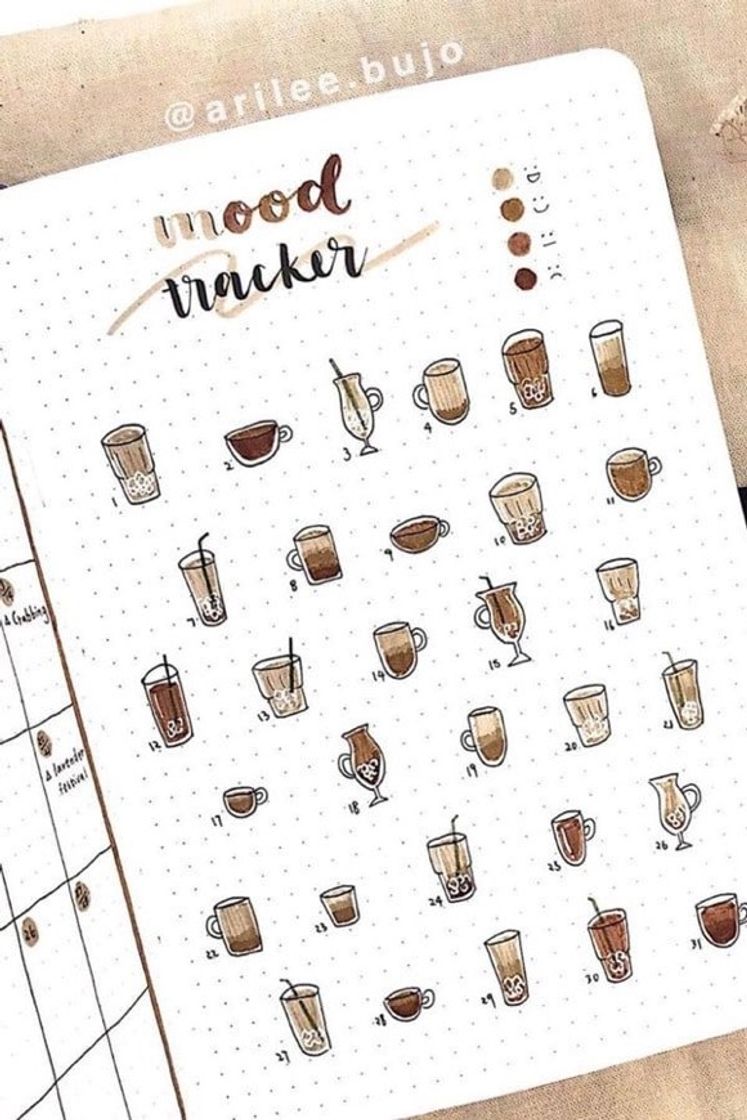 @arilee.bujo
mood
tracker
:D
:)
:|
:(
1
2
3
4
5
6
7
8
9
10
11
12
13
14
15
16
17
18
19
20
21
22
23
24
25
26
27
28
29
30
31
lavender
festival
26